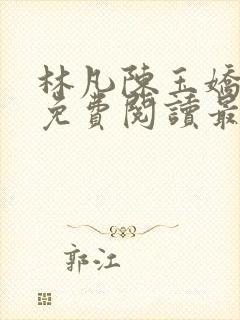 林凡陳玉嬌
免費閱讀最
郭江